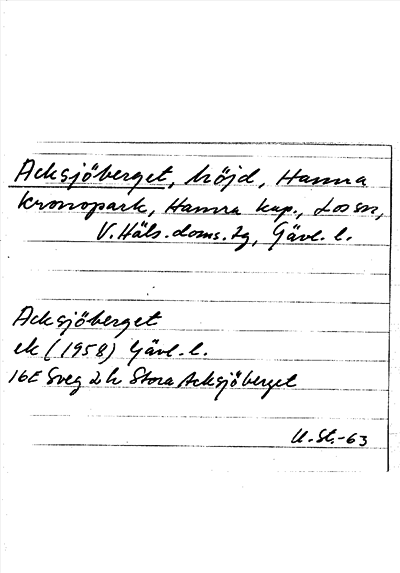 Acksjöberget, höjd, Hamra
kronopark, Hamra kap., Los sn,
V. Häls. doms. lg, Gävl. l.
Acksjöberget
ek (1958) Gävl. l.
16E Sveg 2h Stora Acksjöberget
U. St. -63